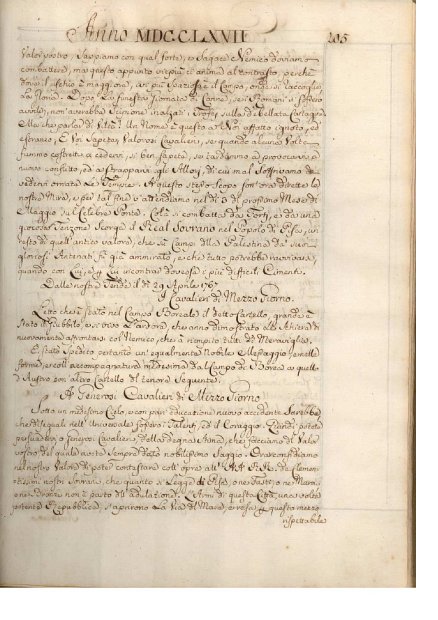 Anno MDCCLXVII 205
Valor vostro. Sappiamo con qual forte, e sagace Nemico dobbiamo
combattere, ma questo appunto vie più ci anima al contrasto, perchè
dove il rischio è maggiore, ivi più spazioso è il Campo, onde si raccolga
la Gloria. Dopo la funesta Giornata di Canne, se i Romani si fossero
avviliti, non avrebbe Scipione inalzati i Trofei sulla debellata Cartagine.
Ma che parlar di viltà! Un Nome è questo a Noi affatto ignoto, ed
estraneo. E Voi sapete, Valorosi Cavalieri, se quando alcune Volte
fummo costretti a cedervi, si ben sapeste, se tardammo a provocarvi a
nuovo conflitto, ed a strapparvi quegli Allori, di cui mal soffrivamo
vedervi ornate le Tempie. A questo stesso scopo son ora dirette le
nostre Mire, e per tal fine v'attendiamo nel dì di prossimo Mese di
Maggio sul Celebre Ponte. Colà si combatta da Forti, e da una
generosa Tenzone scorga il Real Sovrano nel Popolo di Pisa, un
resto di quell'antico valore, che su Campi della Palestina da suoi
gloriosi Antenati fu già ammirato, e che tutto potrebbe incontrare,
quando con Lui, e per Lui incontrar dovesse i più difficili Cimenti.
Dalle nostre Tende li dì 29 Aprile 1767
I Cavalieri di Mezzo Giorno.
Letto che è stato nel Campo Boreale il detto Cartello, grande è
stato il giubbilo, e estremo l'ardore, che anno dimostrato le Schiere di
nuovamente affrontarsi col Nemico, che à riempito tutti di Meraviglia.
È stato spedito pertanto un'egualmente Nobile Messaggio, e nelle
forme, e colli accompagnature medesime dal Campo di Borea a quello
d'Austro con altro Cartello del tenore seguente.
A Generosi Cavalieri di Mezzo Giorno
Sotto un medesimo Cielo, e con pari educazione nuovo accidente sarebbe,
che disuguali nell'Universale fossero i Talenti, ed il Coraggio. Quindi potete
persuadervi o generosi Cavalieri, della degna stima, che facciamo di Valor
vostro del quale aveste sempre dato nobilissimo saggio. Ma confidiamo
nel nostro Valore di poter contrastare coll'opre all'AA. RR. de Clemen-
tissimi nostri Sovrani, che quanto si legge di Pisa, o ne Fasti, o ne Marmi,
o ne Bronzi non è parto dell'adulazione. L'Armi di questa Città, una volta
potente Repubblica, s'aprirono la Via del Mare, e resa per questo mezzo
rispettabile